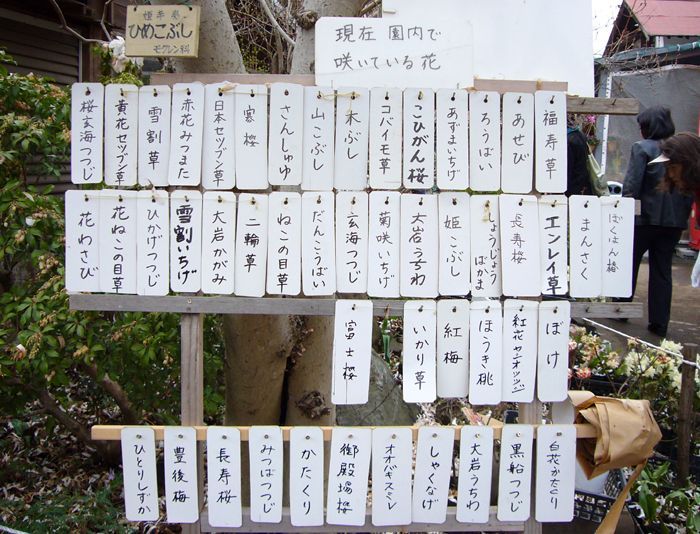 姫辛夷
ひめこぶし
モクレン科
現在 園内で
咲いている花
福寿草
あせび
ろうばい
あずまいちげ
こひがん桜
コバイモ草
木ぶし
山こぶし
さんしゅゆ
寒桜
日本セツブン草
赤花みつまた
雪割草
黄花セツブン草
桜玄海つつじ
ぼくはん椿
まんさく
エンレイ草
長寿桜
しょうじょうばかま
姫こぶし
大岩うちわ
菊咲いちげ
玄海つつじ
だんこうばい
ねこの目草
二輪草
大岩かがみ
雪割いちげ
ひかげつつじ
花ねこの目草
花わさび
ぼけ
紅花ヤシオツツジ
ほうき桃
紅梅
いかり草
富士桜
白花かたくり
黒船つつじ
大岩うちわ
しゃくなげ
オオバキスミレ
御殿場桜
かたくり
みつばつつじ
長寿桜
豊後梅
ひとりしずか